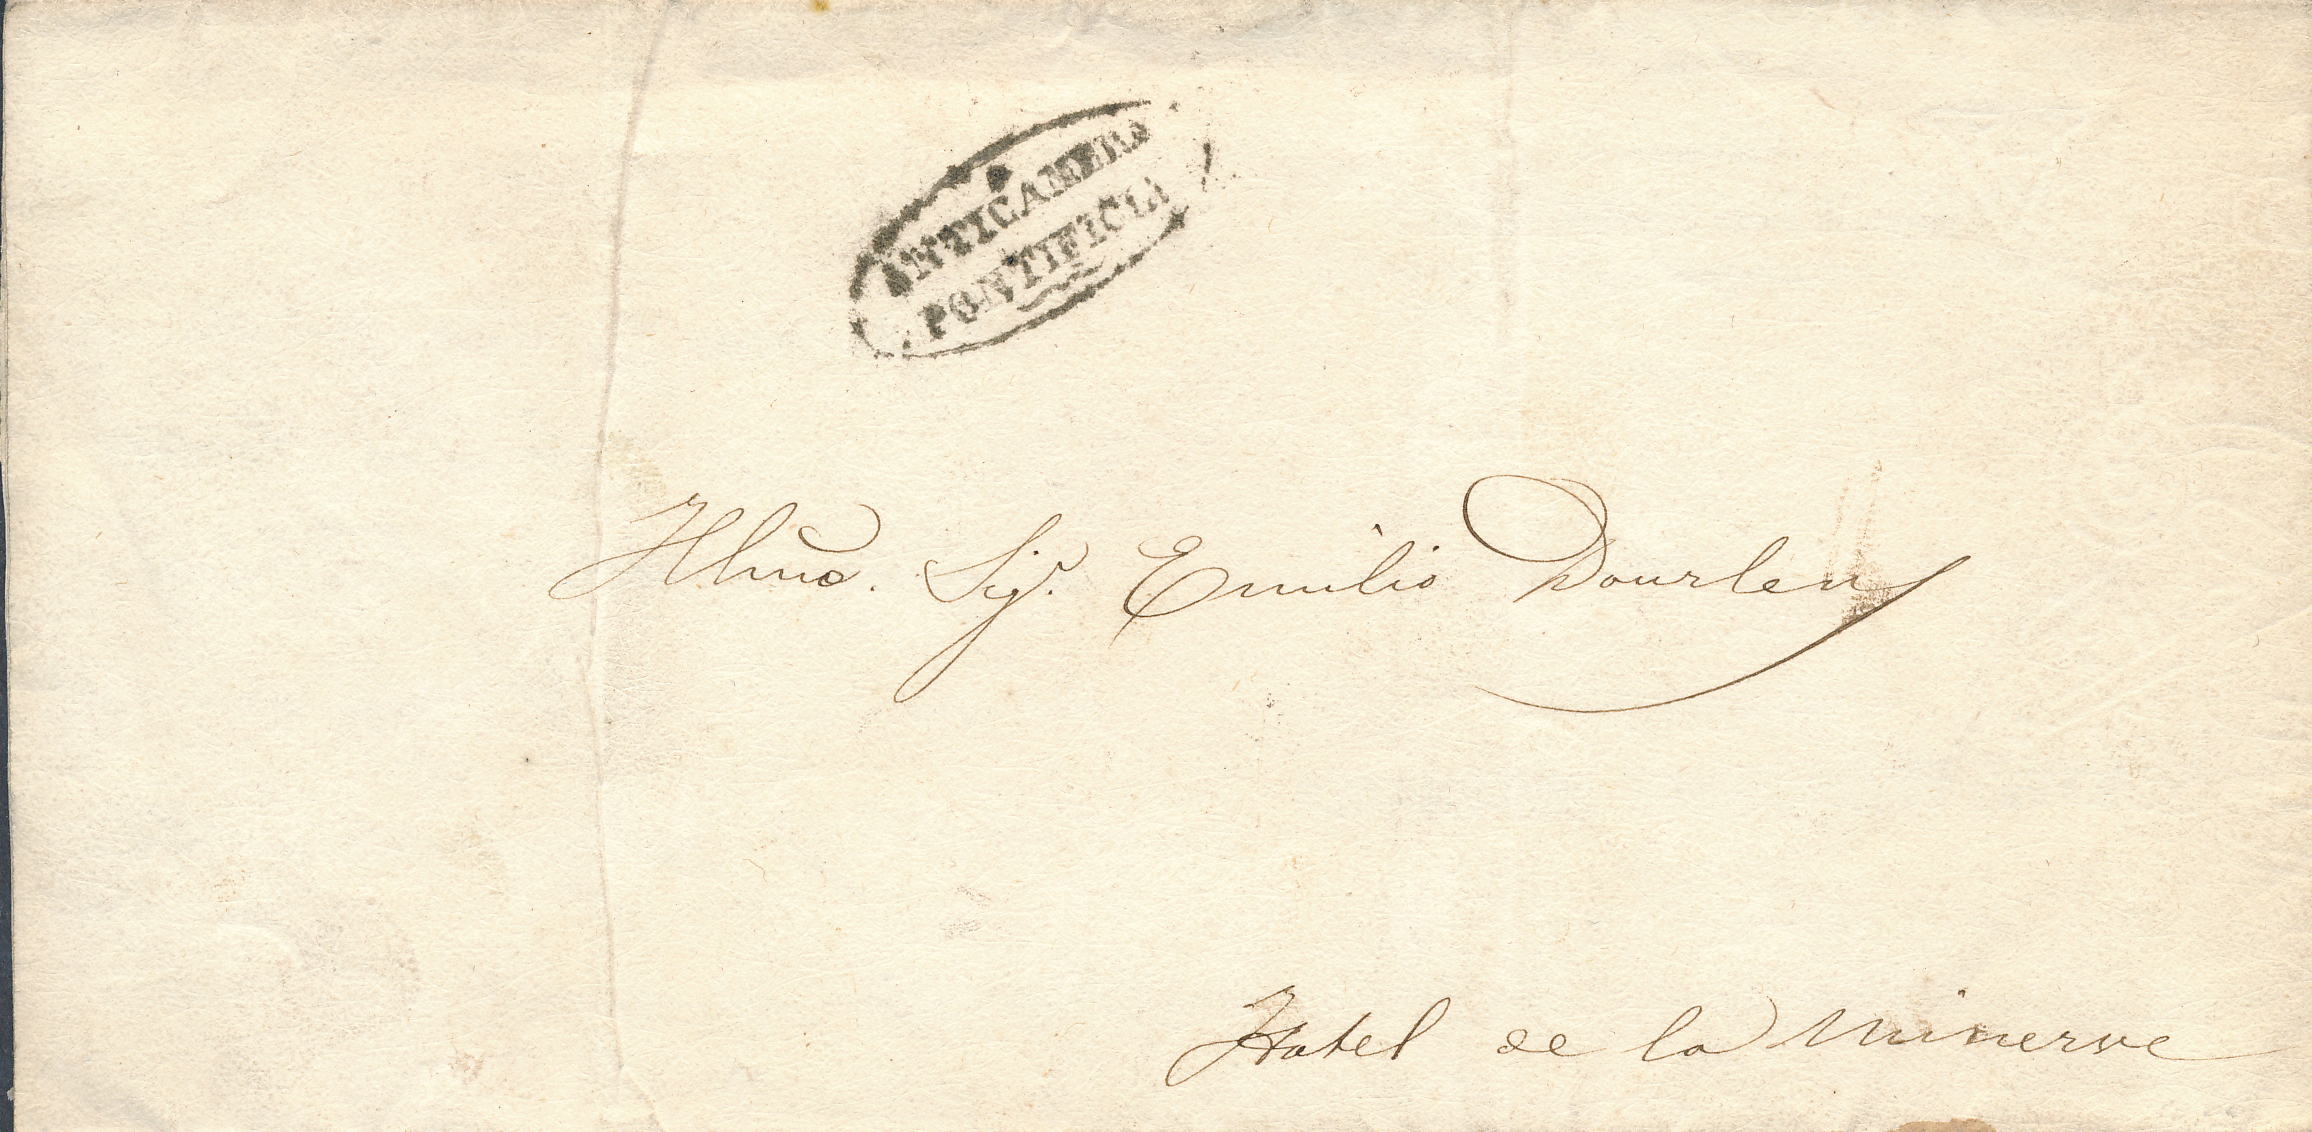 ANTICAMERA
PONTIFICIA
Illm̃o. Sigr. Emilio Dourlens
Hotel de la Minerve